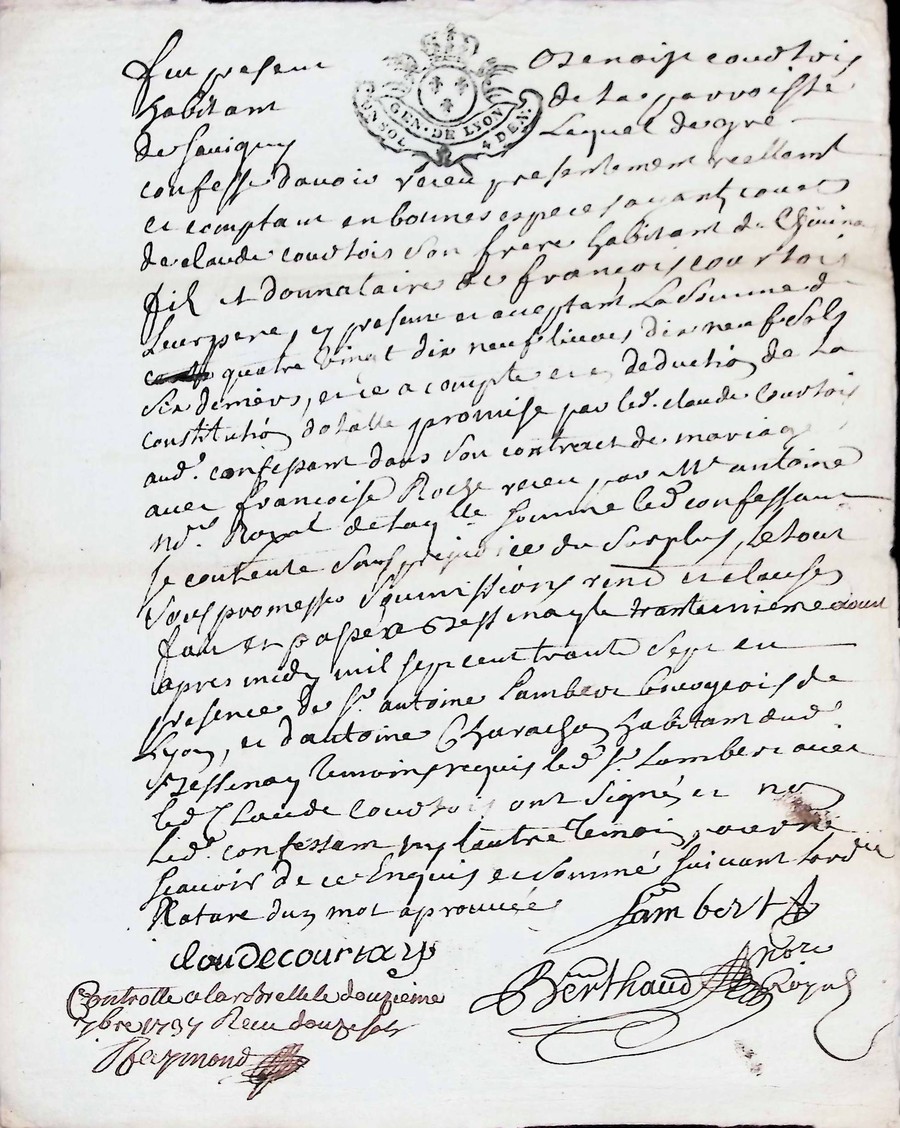 fut present Benoist courtois
habitant de la parroisse
GEN. DE LYON
UN SOL 4 DEN.
de Savigny Lequel de gré
confesse davoir receu presentement reellemt
et comptant en bonnes especes ayant cours
de claude courtois son frere habitant de
fil et donnataire de françois courtois
Leur pere, cy present et acceptant La Somme de
quatre vingt dix neuf livres dix neuf sols
six deniers, et ce a compte et en deduction de La
constitution dotalle promise par led. claude Courtois
aud. confessant dans son contract de mariage
avec francoise Roche receu par Me antoine
nore Royal de laqlle somme led. confessant
se contente sans prejudice du surplus, Le tout
sous promesses soumissions rend et clauses
fait et passé a Bessenay le trante unieme aoust
apres midy mil sept cent trante sept en
presence de sr. antoine Lambert bourgeois de
Lyon, et dantoine Charachon habitant aud.
Bessenay temoins requis led. sr. Lambert avec
led. Claude Courtois ont signé et non
Led. confessant ny lautre temoin pour ne
scavoir de ce Enquis et sommé suivant Lordce
Rature dun mot aprouvée
Lambert
claudecourtois
Berthaud nore Royal
Controllé a larbrelle le douzieme
7bre 1737 Receu douze sols
Raymond